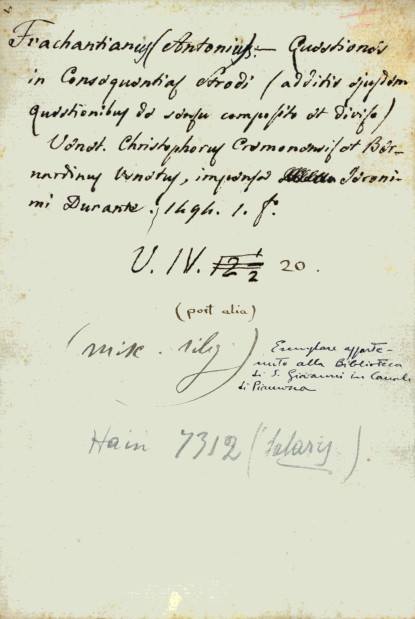 Frachantianus (Antonius). — Quæstiones
in Consequentias Strodi (additis ejusdem
quæstionibus de sensu composito et diviso)
Venet. Christophorus Cremonensis et Ber-
nardinus Venetus, impensa Iéroni-
mi Durante, 1494. 1. fº.
U. IV. 20.
(post alia)
(misc.
Esemplare apparte-
nuto alla Biblioteca
di S. Giovanni in Canale
di Piacenza
Hain 7312 (